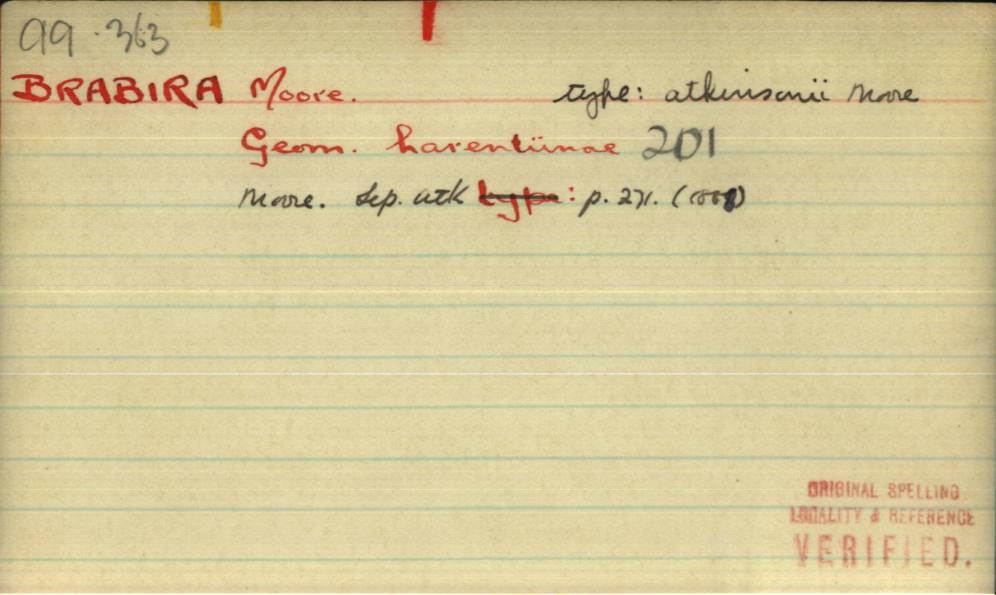 99.363
BRABIRA Moore. type: atkinsonii Moore
Geom. larentiinae 201
Moore. Lep. atk type: p. 271. (1888)
ORIGINAL SPELLING
LOCALITY & REFERENCE
VERIFIED.